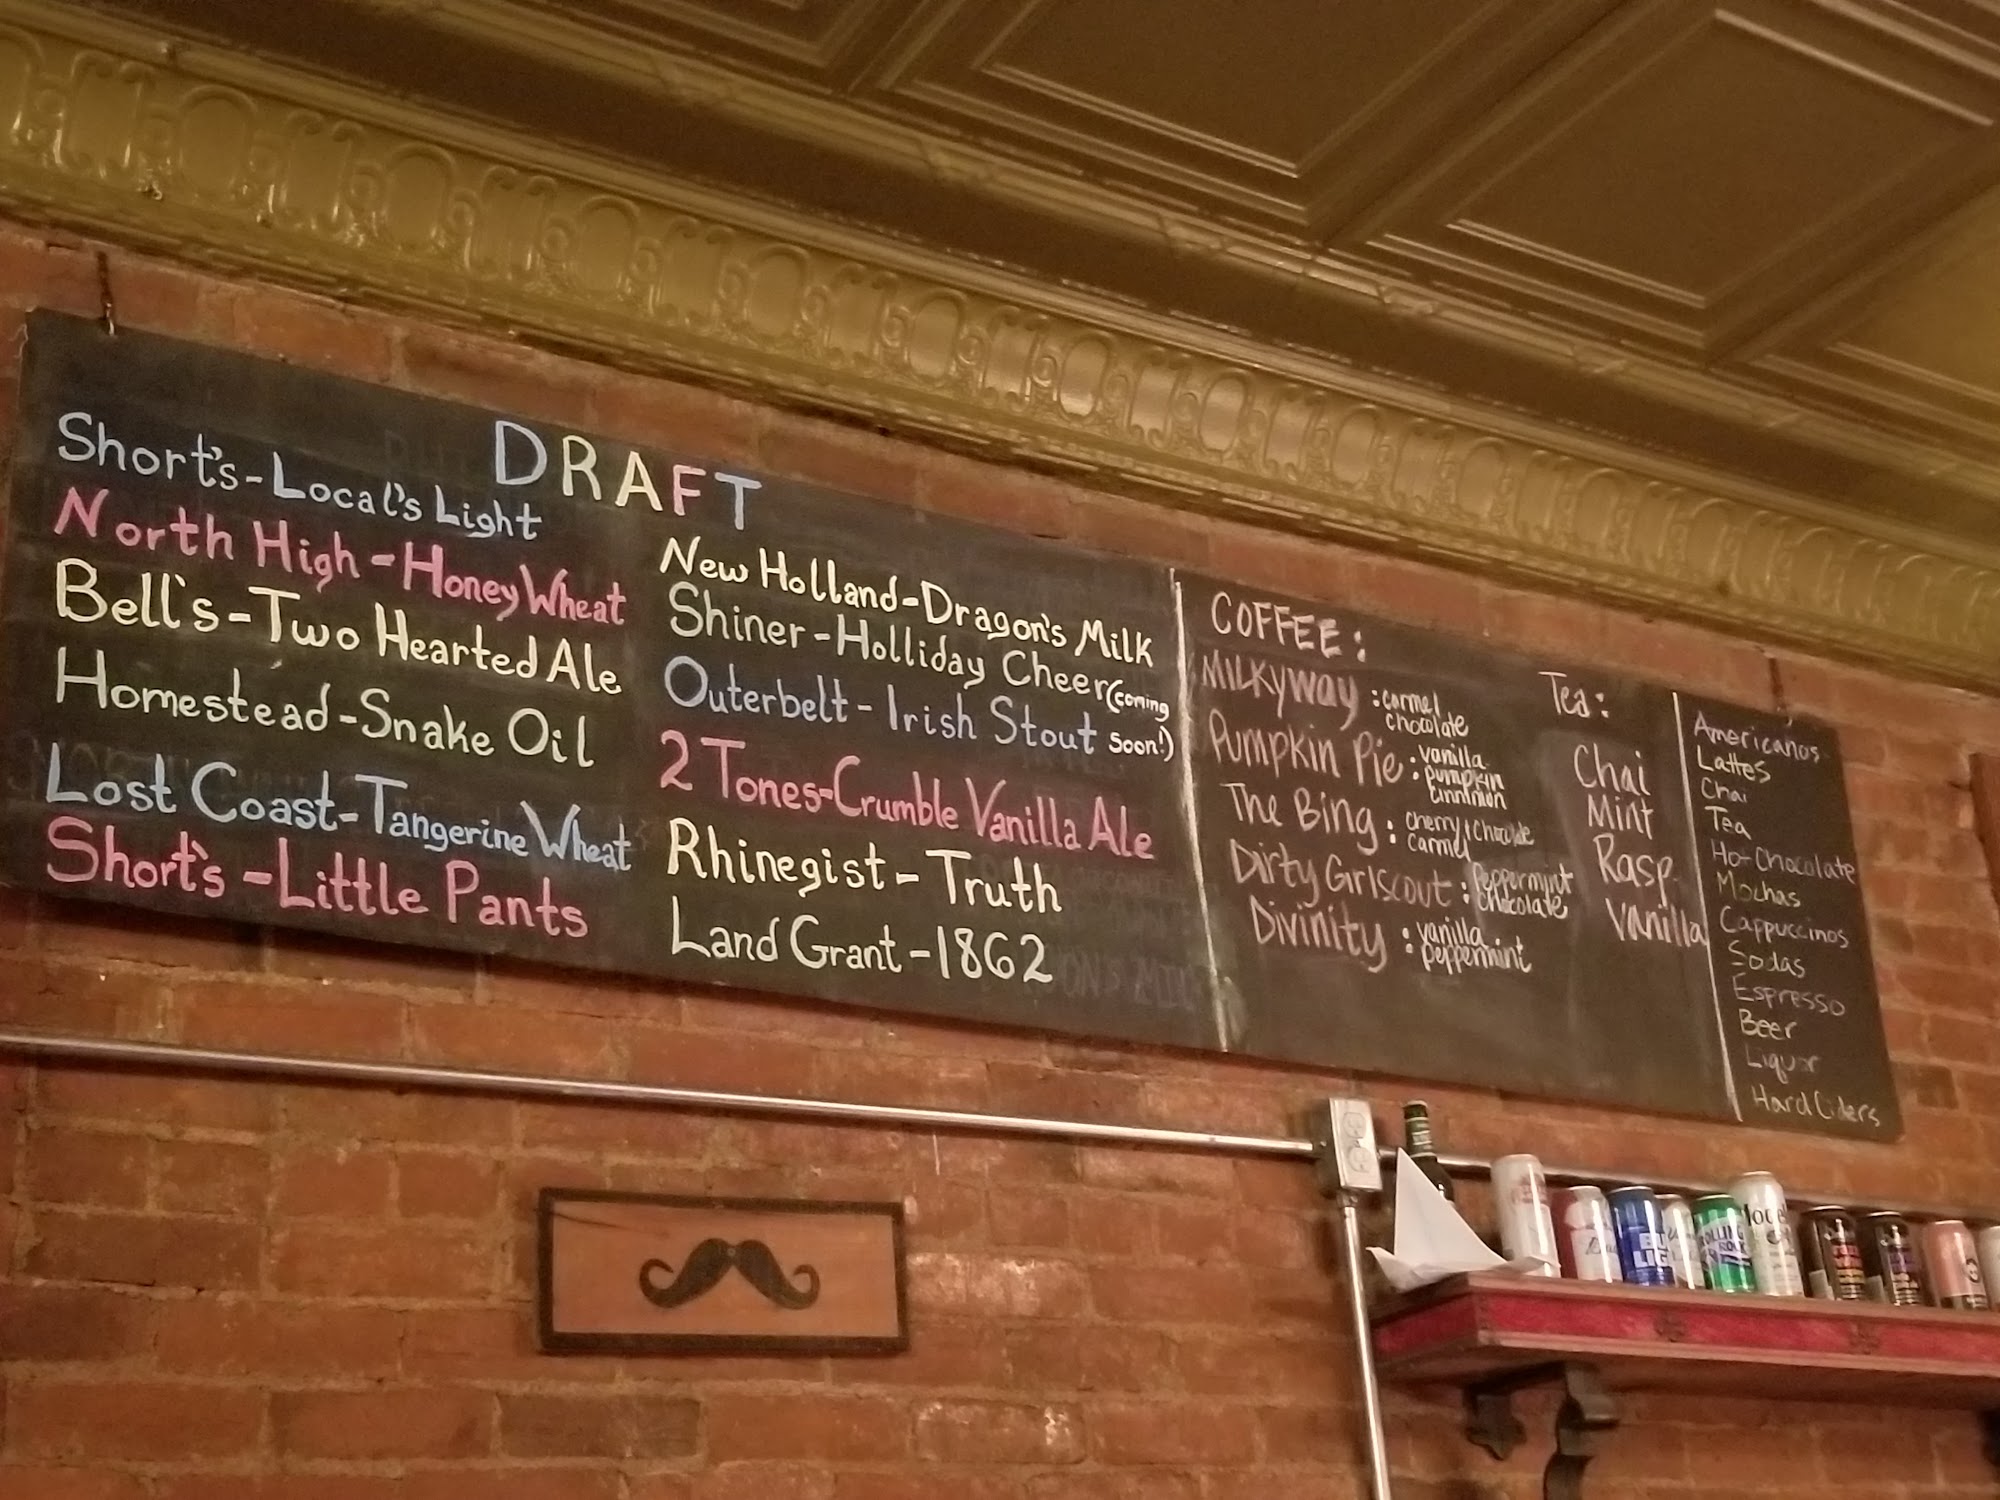 DRAFT
Short's-Local's Light
North High-Honey Wheat
Bell's-Two Hearted Ale
Homestead-Snake Oil
Lost Coast-Tangerine Wheat
Short's-Little Pants
New Holland-Dragon's Milk
Shiner-Holliday Cheer (coming
soon!)
Outerbelt-Irish Stout
2 Tones-Crumble Vanilla Ale
Rhinegist-Truth
Land Grant-1862
COFFEE:
Milkyway: carmel
chocolate
Pumpkin Pie: vanilla
: pumpkin
cinnimon
The Bing: cherry, chocolate
carmel
Dirty Girlscout: Peppermint
chocolate
Divinity: vanilla
peppermint
Tea:
Chai
Mint
Rasp.
Vanilla
Americanos
Lattes
Chai
Tea
Hot Chocolate
Mochas
Cappuccinos
Sodas
Espresso
Beer
Liquor
Hard Ciders
ROLLING
ROCK